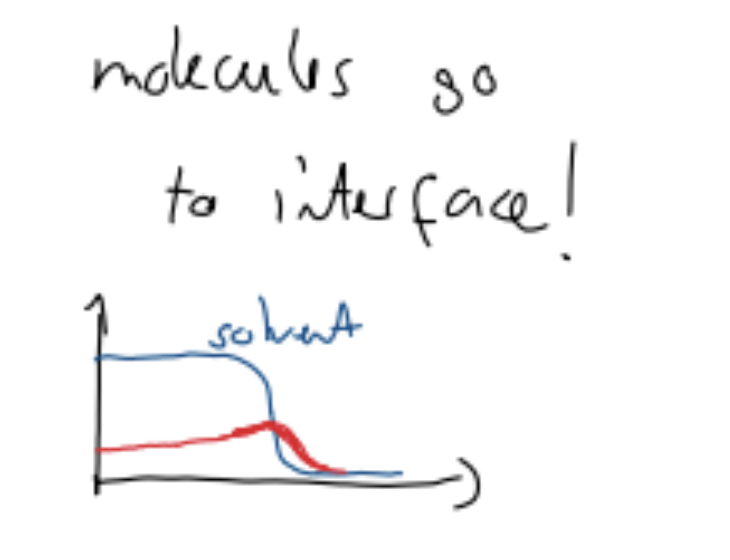 molecules go
to interface!
solvent